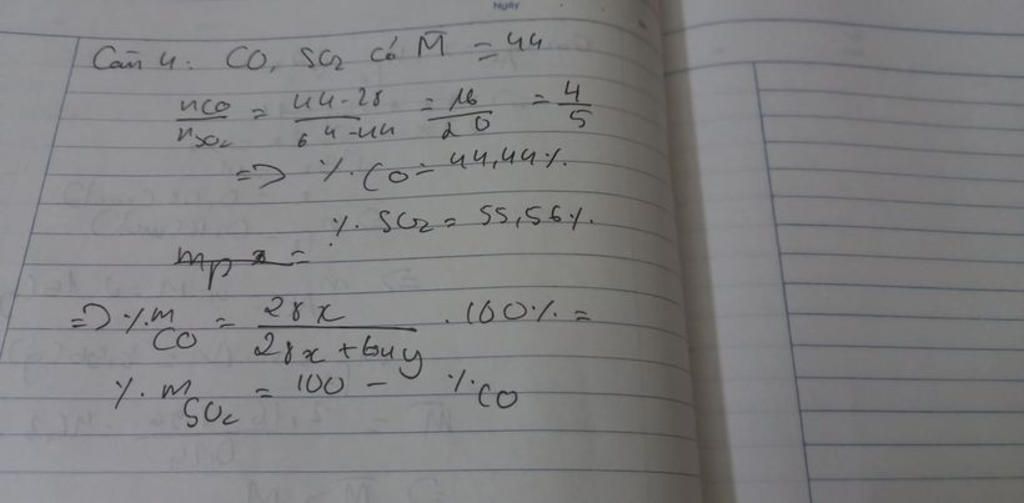 Ngày
Câu 4: CO, SO₂ có M̅ = 44
nCO/nSO₂ = (44-28)/(64-44) = 16/20 = 4/5
=> %CO = 44,44%.
% SO₂ = 55,56%.
=> %m CO = 28x/(28x+64y) . 100% =
%m SO₂ = 100 - %CO